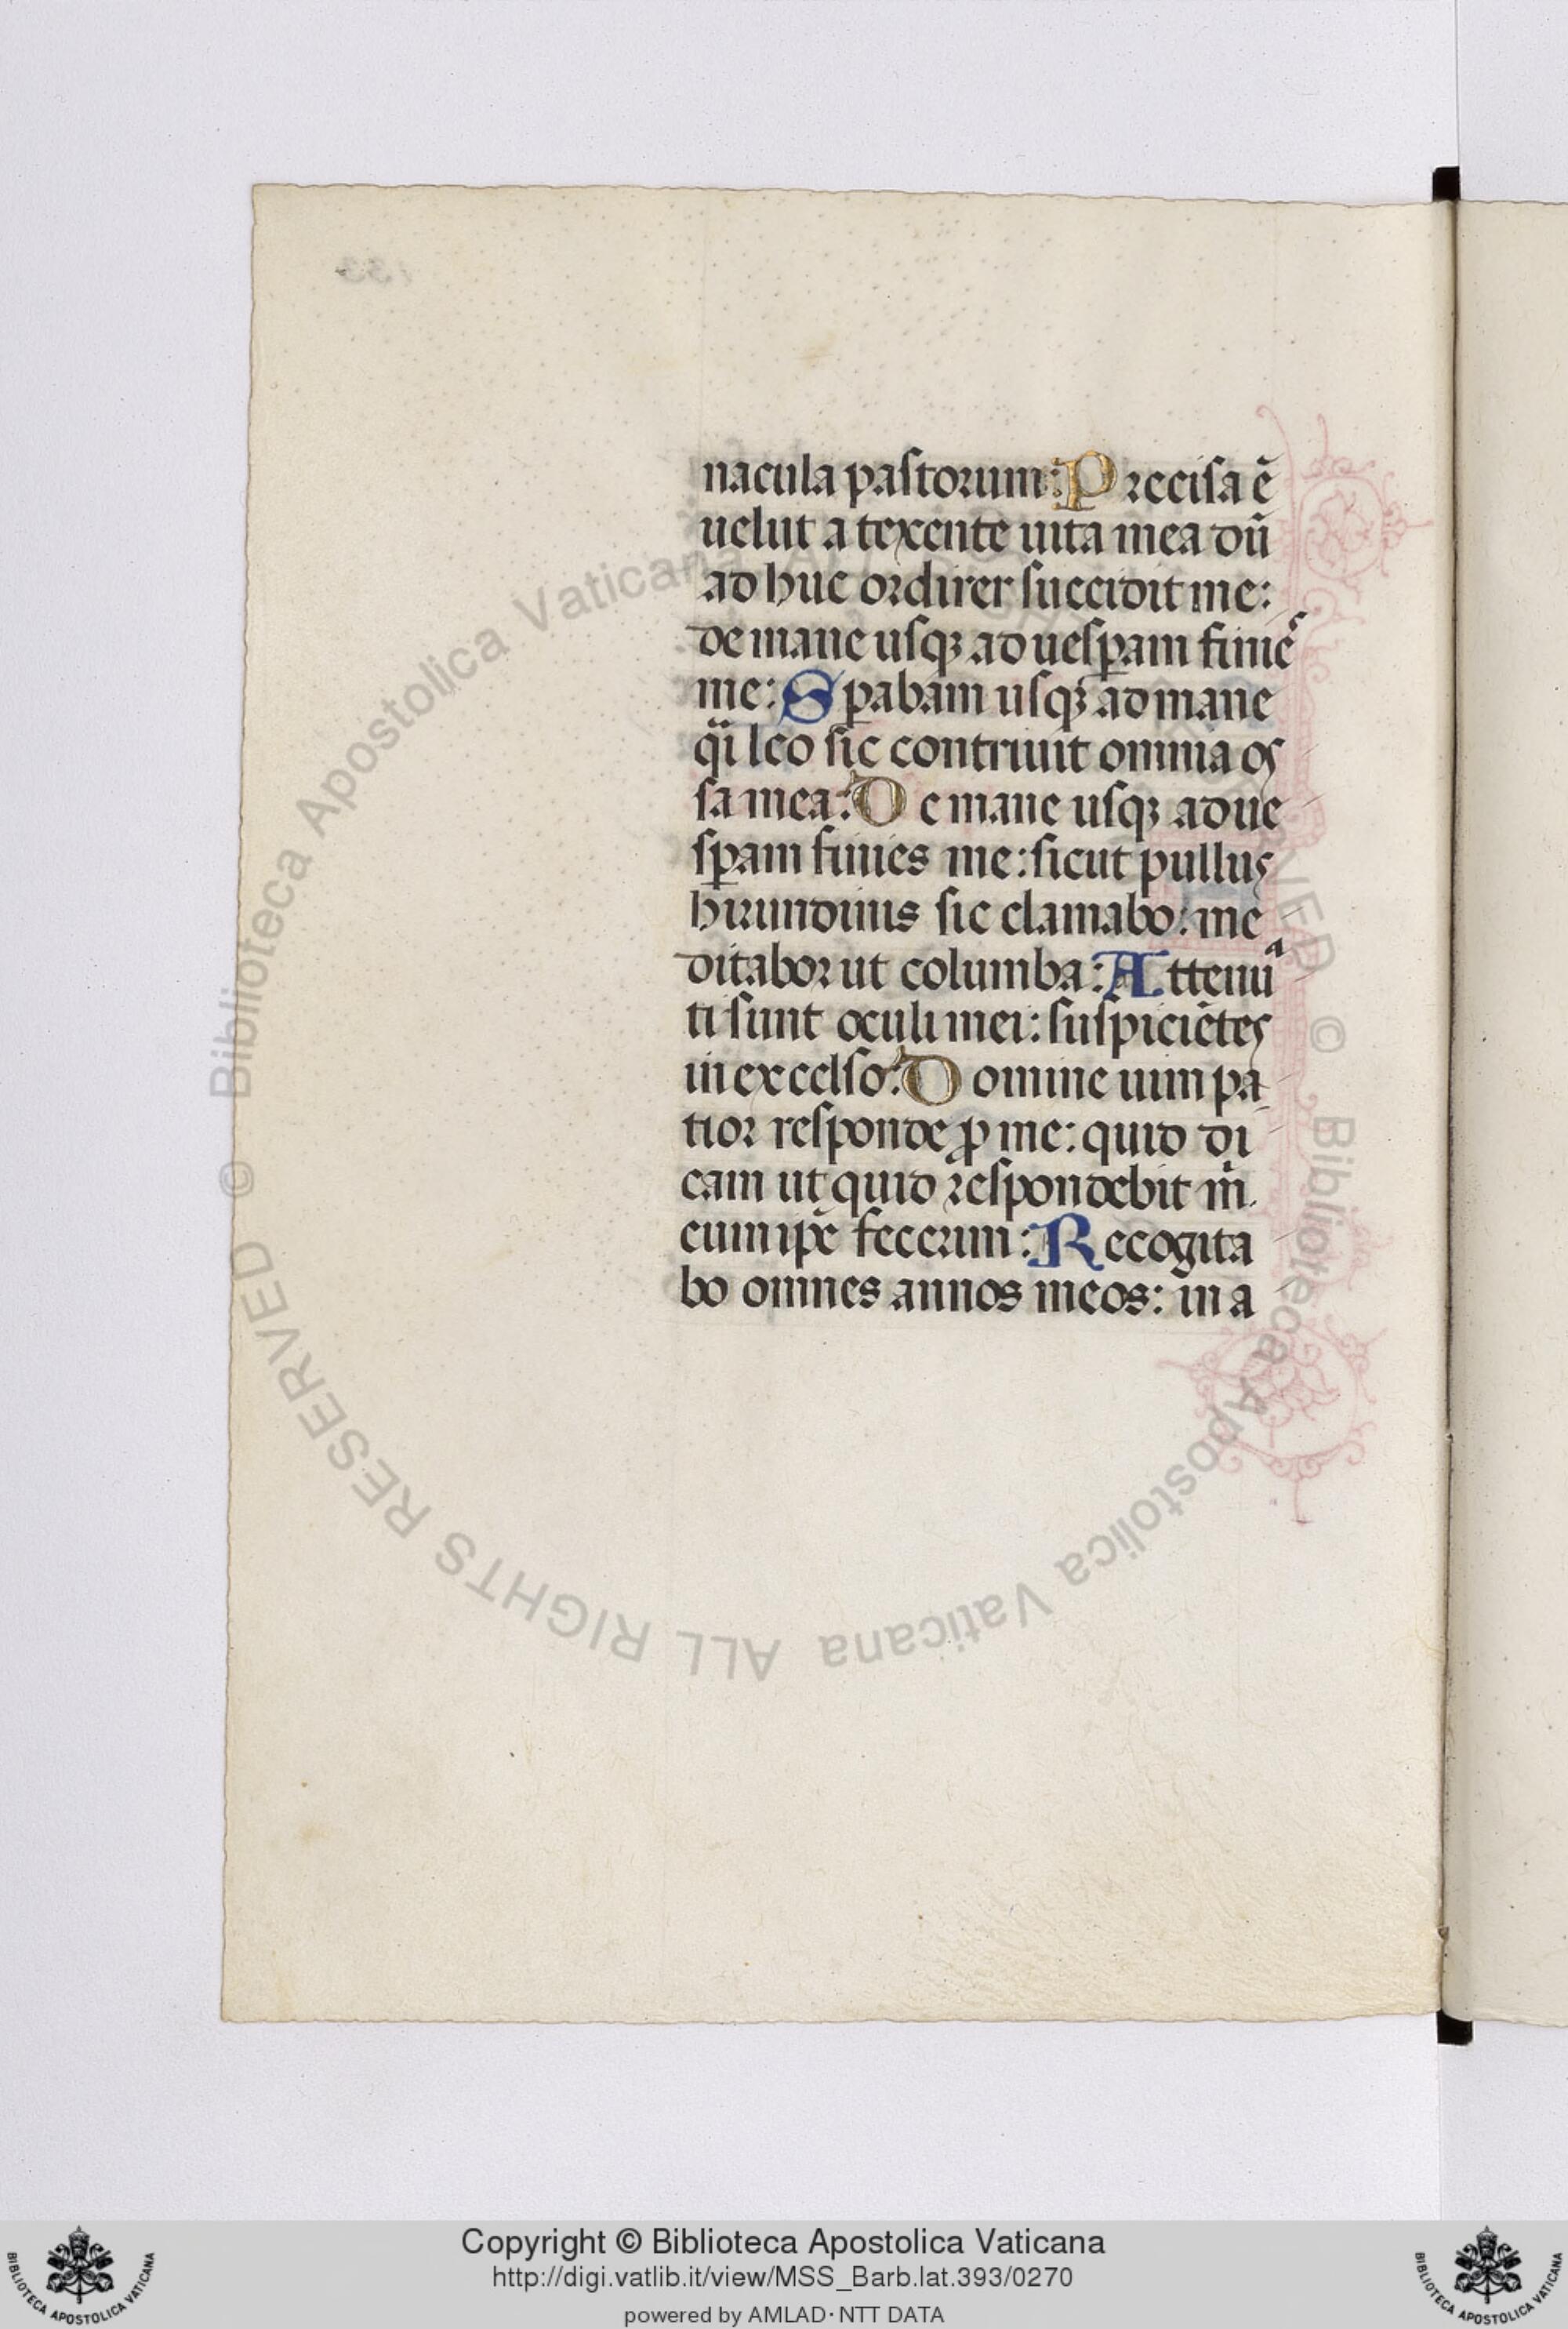 nacula pastorum: Precisa ē
uelut a texente uita mea dū
ad huc ordirer succidit me:
de mane usqꝫ ad uesꝑam finieˢ
me: Sꝑabam usqꝫ ad mane
qͣi leo sic contriuit omnia os
sa mea: De mane usqꝫ ad ue
sꝑam finies me: sicut pullus
hirundinis sic clamabo: me
ditabor ut columba: Attenuᵃ
ti sunt oculi mei: suspiciētes
in excelso: Domine uim pa
tior responde ꝓ me: quid di
cam ut quid respondebit mͥ
cum ip̄e fecerim: Recogita
bo omnes annos meos: in a
133
© Biblioteca Apostolica Vaticana ALL RIGHTS RESERVED © Biblioteca Apostolica Vaticana ALL RIGHTS RESERVED
Copyright © Biblioteca Apostolica Vaticana
http://digi.vatlib.it/view/MSS_Barb.lat.393/0270
powered by AMLAD·NTT DATA
BIBLIOTECA APOSTOLICA VATICANA
BIBLIOTECA APOSTOLICA VATICANA